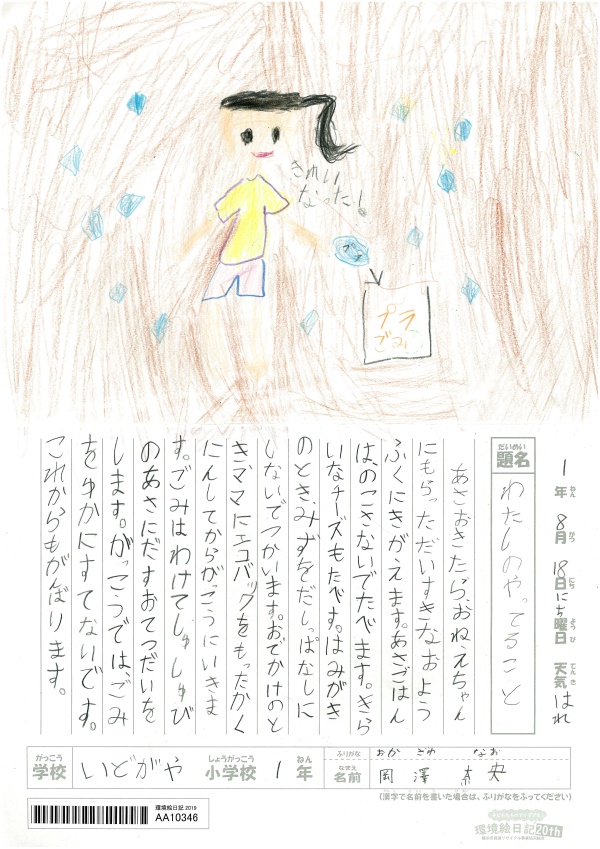 きれい
なった!
プラ
プラ
ゴミ
1年 8月 18日 にち曜日 天気 はれ
ねん がつ にち ようび てんき
だいめい
題名
わたしのやってること
あさおきたら、おねえちゃん
にもらっただいすきなおよう
ふくにきがえます。あさごはん
は、のこさないでたべます。きら
いなチーズもたべます。はみがき
のとき、みずをだしっぱなしに
しないでつかいます。おでかけのと
き、ママにエコバックをもったかく
にんしてからがっこうにいきま
す。ごみはわけてしゅうしゅうび
のあさにだすおてつだいを
します。がっこうでは、ごみ
をゆかにすてないです。
これからもがんばります。
がっこう しょうがっこう ねん ふりがな おか ざわ なお
学校 いどがや 小学校 1年 なまえ 名前 岡 澤 奈 央
(漢字で名前を書いた場合は、ふりがなをふってください)
環境絵日記2019
AA10346
環境絵日記20th